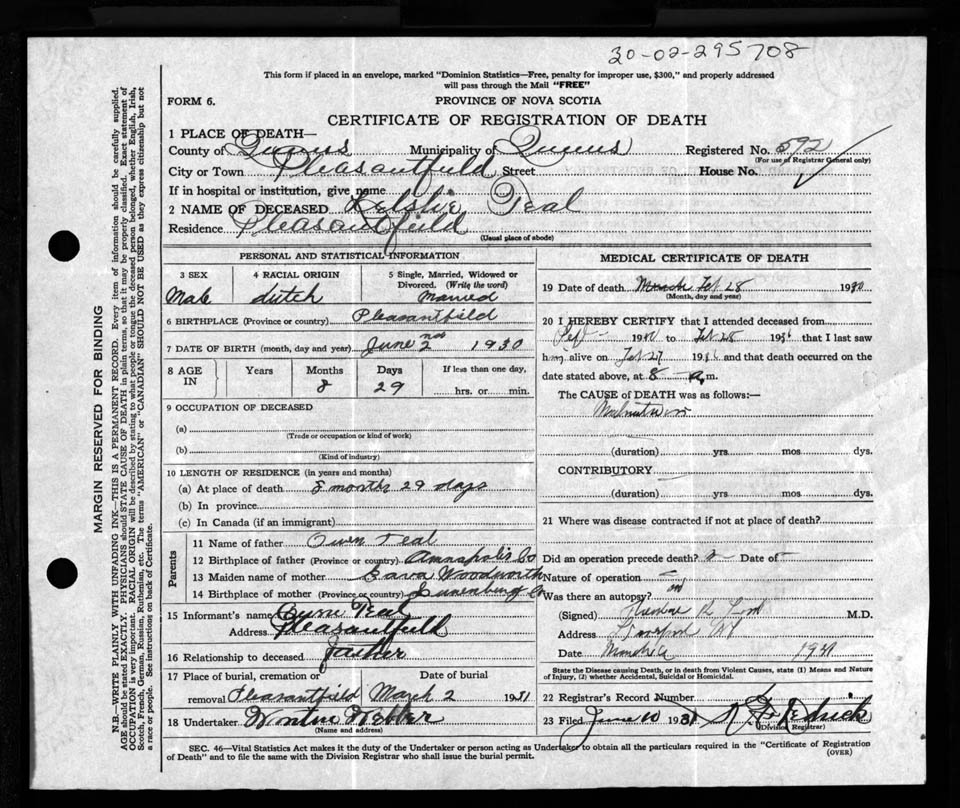 30-02-295708
This form if placed in an envelope, marked "Dominion Statistics—Free, penalty for improper use, $300," and properly addressed
will pass through the Mail "FREE"
FORM 6.
PROVINCE OF NOVA SCOTIA
CERTIFICATE OF REGISTRATION OF DEATH
1 PLACE OF DEATH—
County of Queens Municipality of Queens Registered No. 592
(For use of Registrar General only)
City or Town Pleasantfield Street House No.
If in hospital or institution, give name
2 NAME OF DECEASED Teal
Residence Pleasantfield
(Usual place of abode)
PERSONAL AND STATISTICAL INFORMATION
3 SEX 4 RACIAL ORIGIN 5 Single, Married, Widowed or
Divorced. (Write the word)
Male dutch Married
6 BIRTHPLACE (Province or country) Pleasantfield
7 DATE OF BIRTH (month, day and year) June 2 1930
8 AGE IN Years Months Days If less than one day,
8 29 hrs. or min.
9 OCCUPATION OF DECEASED
(a)
(Trade or occupation or kind of work)
(b)
(Kind of industry)
10 LENGTH OF RESIDENCE (in years and months)
(a) At place of death 8 months 29 days
(b) In province
(c) In Canada (if an immigrant)
Parents
11 Name of father Owen Teal
12 Birthplace of father (Province or country) Annapolis Co
13 Maiden name of mother Woodworth
14 Birthplace of mother (Province or country) Lunenburg Co
15 Informant's name Teal
Address Pleasantfield
16 Relationship to deceased father
17 Place of burial, cremation or Date of burial
removal Pleasantfield March 2 1931
18 Undertaker
(Name and address)
MEDICAL CERTIFICATE OF DEATH
19 Date of death March Feb 28 19
(Month, day and year)
20 I HEREBY CERTIFY that I attended deceased from
Sept 19 to Feb 28 19 that I last saw
h alive on Feb 27 19 and that death occurred on the
date stated above, at 8 a.m.
The CAUSE of DEATH was as follows:—
(duration) yrs mos dys.
CONTRIBUTORY
(duration) yrs. mos. dys.
21 Where was disease contracted if not at place of death?
Did an operation precede death? Date of
Nature of operation
Was there an autopsy?
(Signed) M.D.
Address
Date 19
State the Disease causing Death, or in death from Violent Causes, state (1) Means and Nature
of Injury, (2) whether Accidental, Suicidal or Homicidal.
22 Registrar's Record Number
23 Filed June 10 1931
(Division Registrar)
SEC. 46—Vital Statistics Act makes it the duty of the Undertaker or person acting as Undertaker to obtain all the particulars required in the "Certificate of Registration
of Death" and to file the same with the Division Registrar who shall issue the burial permit. (OVER)
MARGIN RESERVED FOR BINDING
N.B.—WRITE PLAINLY WITH UNFADING INK—THIS IS A PERMANENT RECORD. Every item of information should be carefully supplied.
AGE should be stated EXACTLY. PHYSICIANS should STATE CAUSE OF DEATH in plain terms, so that it may be properly classified. Exact statement of
OCCUPATION is very important. RACIAL ORIGIN will be described by stating to what people or tongue the deceased person belonged, whether English, Irish,
Scotch, French, German, Russian, Ruthenian, etc. The terms "AMERICAN" or "CANADIAN" SHOULD NOT BE USED as they express citizenship but not
a race or people. See instructions on back of Certificate.